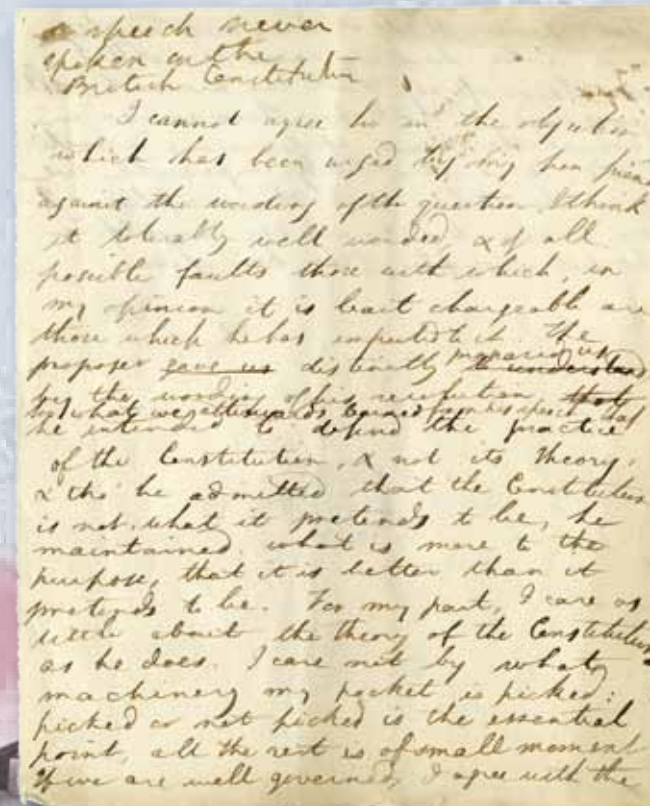 a speech never
spoken on the
British Constitution
I cannot agree in the objection
which has been urged by my hon friend
against the wording of the question. I think
it tolerably well worded, & of all
possible faults those with which, in
my opinion it is least chargeable are
those which he has imputed to it. The
proposer gave us distinctly prepared us to understand
by the wording of his resolution that
by what we afterwards learned from his speech that
he intended to defend the practice
of the Constitution, & not its theory.
& tho' he admitted that the Constitution
is not what it pretends to be, he
maintained, what is more to the
purpose, that it is better than it
pretends to be. For my part, I care as
little about the theory of the Constitution
as he does. I care not by what
machinery my pocket is picked:
picked or not picked is the essential
point, all the rest is of small moment
If we are well governed, I agree with the